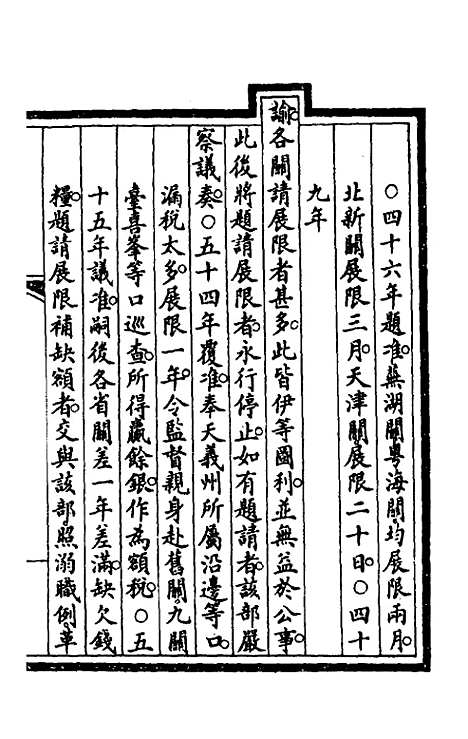 ○四十六年題准。蕪湖關粵海關。均展限兩月。
北新關展限三月。天津關展限二十日。○四十
九年
諭。各關請展限者甚多。此皆伊等圖利。並無益於公事。
此後將題請展限者。永行停止。如有題請者。該部嚴
察議奏。○五十四年覆准。奉天義州所屬沿邊等口。
漏稅太多。展限一年。令監督親身赴舊關。九關
臺喜峯等口巡查。所得贏餘銀。作為額稅。○五
十五年議准。嗣後各省關差一年差滿。缺欠錢
糧。題請展限補缺額者。交與該部。照溺職例。革